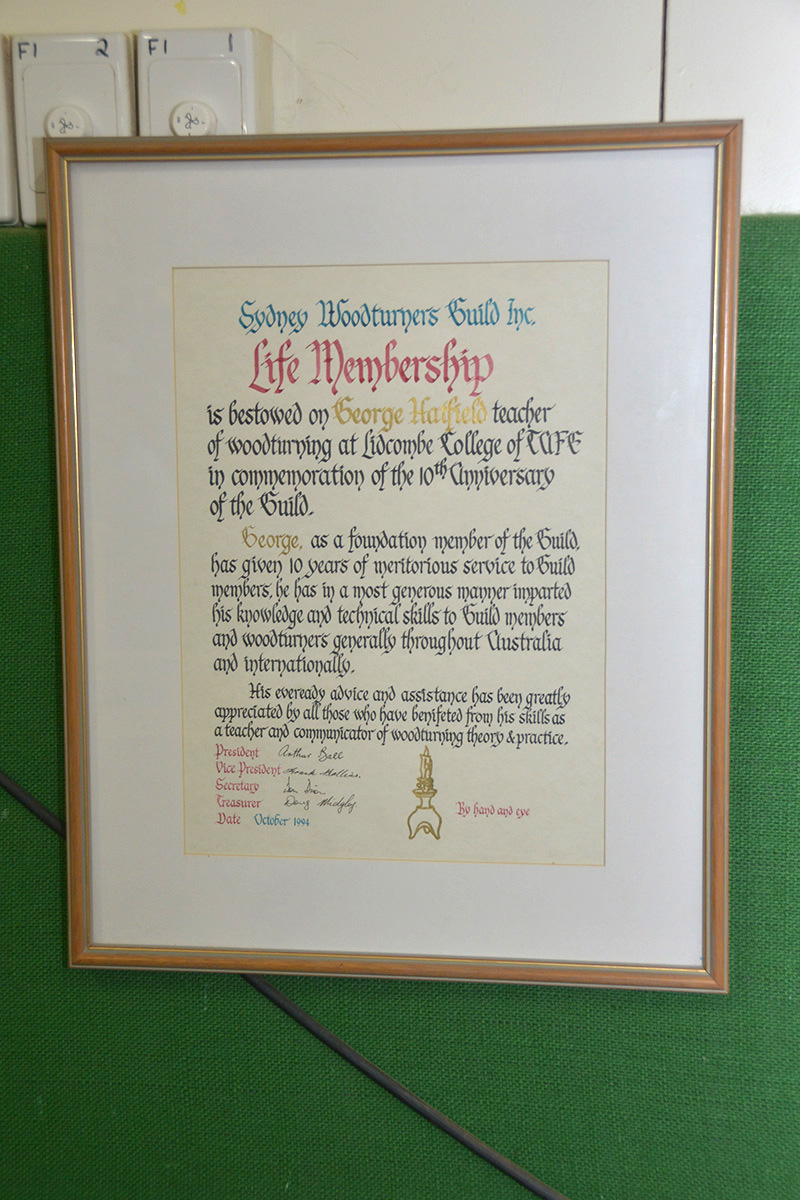 F1 2
F1 1
Sydney Woodturners Guild Inc.
Life Membership
is bestowed on George Hatfield teacher
of woodturning at Lidcombe College of TAFE
in commemoration of the 10th Anniversary
of the Guild.
George, as a foundation member of the Guild,
has given 10 years of meritorious service to Guild
members, he has in a most generous manner imparted
his knowledge and technical skills to Guild members
and woodturners generally throughout Australia
and internationally.
His eveready advice and assistance has been greatly
appreciated by all those who have benifeted from his skills as
a teacher and communicator of woodturning theory & practice.
President Arthur Ball
Vice President Frank
Secretary
Treasurer Doug Midgley
Date October 1994
By hand and eye